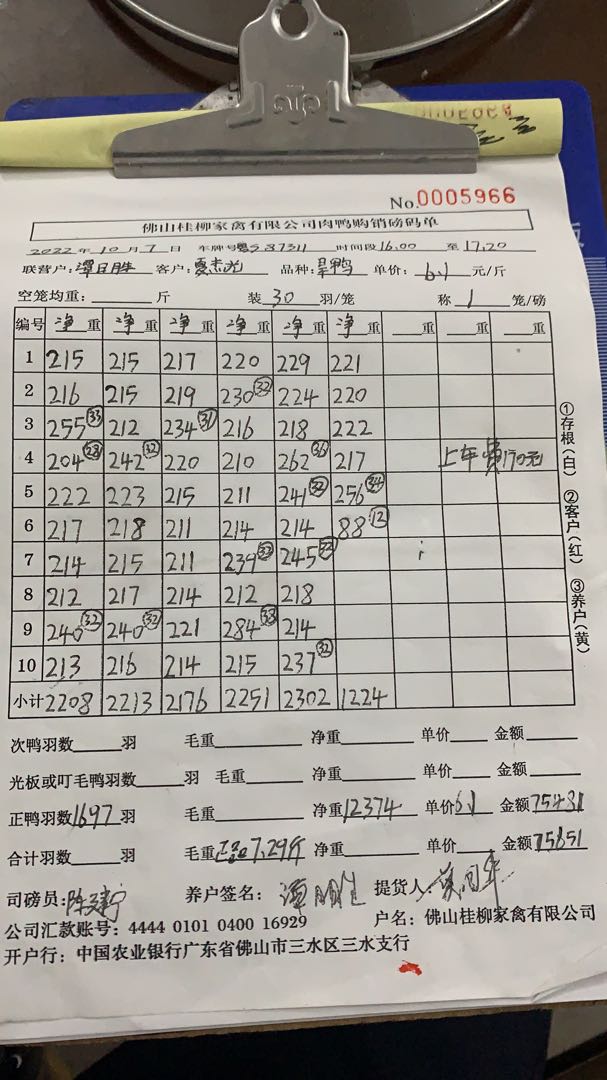 No.0005966
佛山桂柳家禽有限公司肉鸭购销磅码单
2022年10月7日 车牌号粤S87311 时间段16.00至17.20
联营户：谭日胜 客户： 品种：旱鸭 单价：6.1元/斤
空笼均重：斤 装30羽/笼 称1笼/磅
编号 净重 净重 净重 净重 净重 净重 重 重 重
1 215 215 217 220 229 221
2 216 215 219 230㉜ 224 220
3 255㉝ 212 234㉛ 216 218 222
4 204㉘ 242㉜ 220 210 262㊱ 217 上车费170元
5 222 223 215 211 241㉜ 256㉞
6 217 218 211 214 214 88⑫
7 214 215 211 239㉜ 245㉝
8 212 217 214 212 218
9 240㉜ 240㉜ 221 284㊳ 214
10 213 216 214 215 237㉜
小计 2208 2213 2176 2251 2302 1224
次鸭羽数 羽 毛重 净重 单价 金额
光板或叮毛鸭羽数 羽 毛重 净重 单价 金额
正鸭羽数1697羽 毛重 净重12374 单价6.1 金额75481
合计羽数 羽 毛重正品7.29斤 净重 单价 金额75651
司磅员： 养户签名： 提货人：
公司汇款账号：4444 0101 0400 16929 户名：佛山桂柳家禽有限公司
开户行：中国农业银行广东省佛山市三水区三水支行
①存根（白） ②客户（红） ③养户（黄）